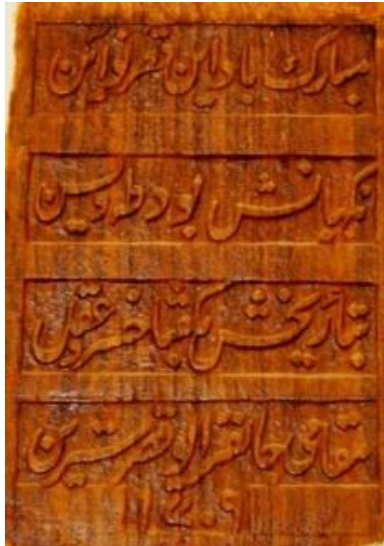 مبارک باد این قصر نوآئین
نگهبانش بود طه و یسین
بتاریخش بگفتا خسرو عقل
مقامی جانفزا و قصر شیرین
۱۲۰۹